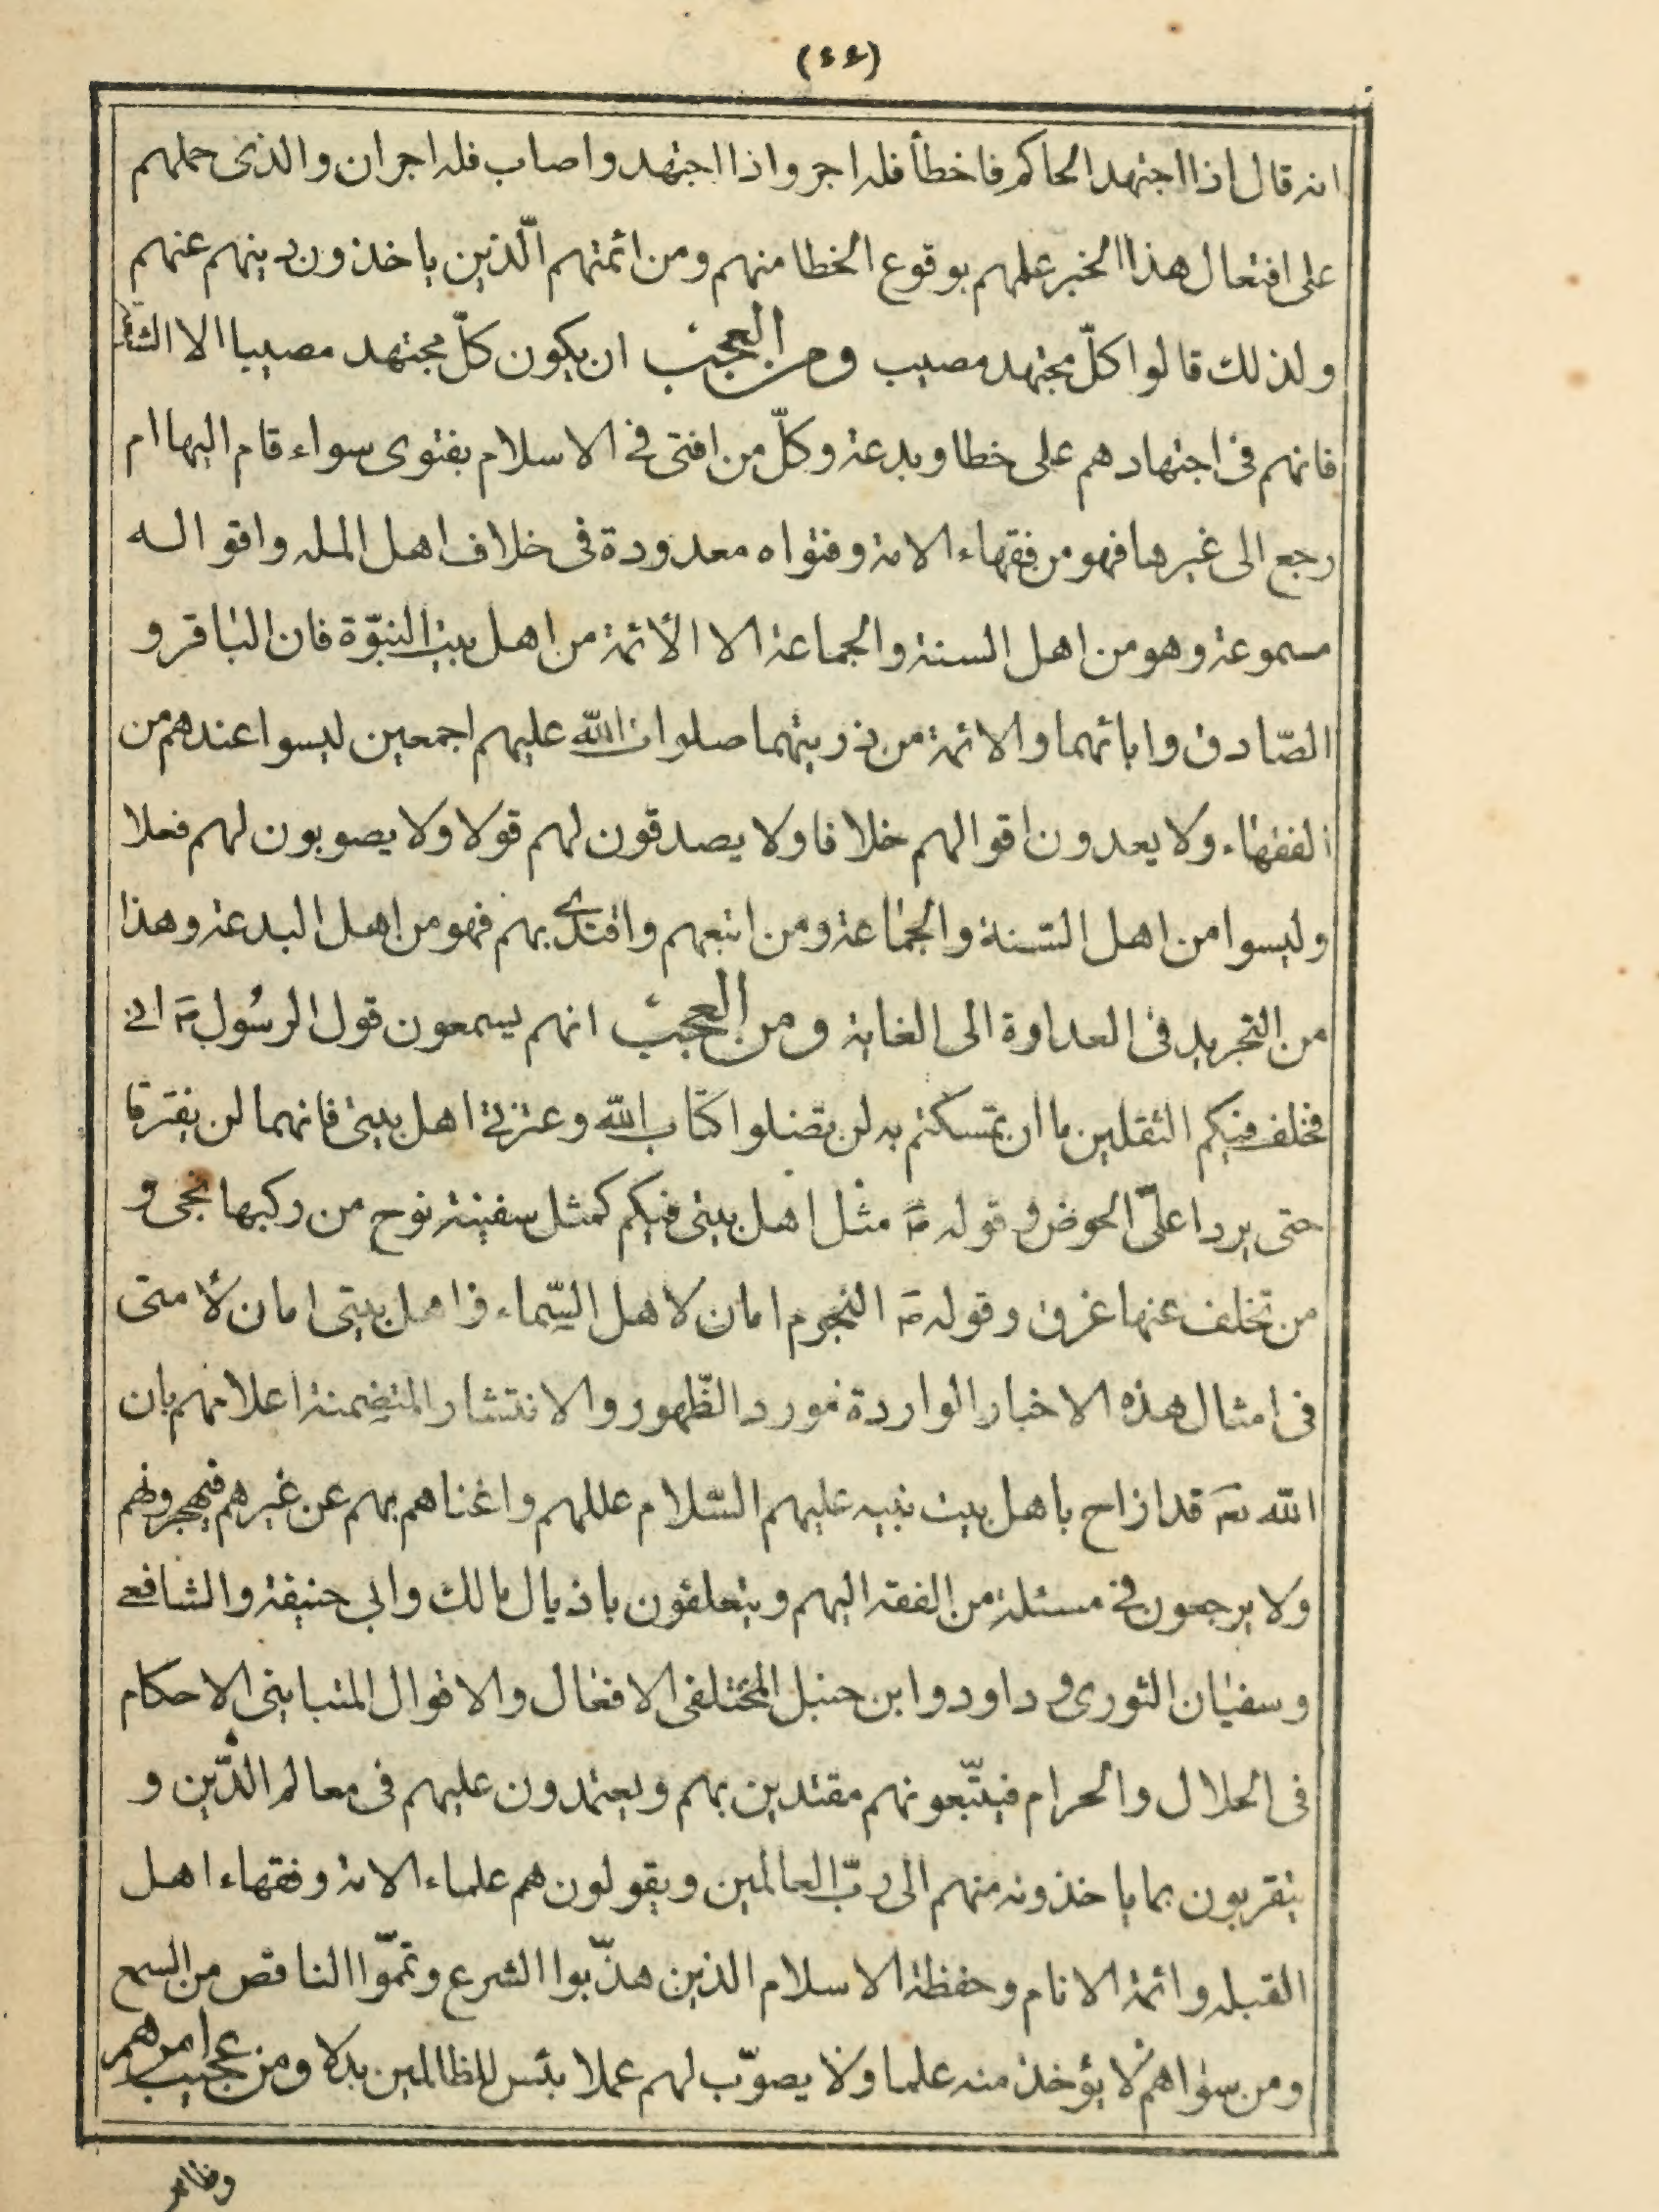 (٤٤)
انه قال اذا اجتهد الحاكم فاخطأ فله اجر واذا اجتهد واصاب فله اجران والذى حملهم
على افتعال هذا الخبر علمهم بوقوع الخطا منهم ومن ائمتهم الّذين ياخذون دينهم عنهم
ولذلك قالوا كلّ مجتهد مصيب ومن العجيب ان يكون كلّ مجتهد مصيبا الا
فانهم فى اجتهادهم على خطا وبدعة وكلّ من افتى فى الاسلام بفتوى سواء قام اليها ام
رجع الى غيرها فهو من فقهاء الامة وفتواه معدودة فى خلاف اهل المله واقواله
مسموعة وهو من اهل السنة والجماعة الا الأئمة من اهل بيت النبوّة فان الباقر و
الصّادق وابائهما والائمة من ذريتهما صلوات الله عليهم اجمعين ليسوا عندهم من
الفقهاء ولا يعدون اقوالهم خلافا ولا يصدقون لهم قولا ولا يصوبون لهم فعلا
وليسوا من اهل السّنة والجماعة ومن اتبعهم واقتدى بهم فهو من اهل البدعة وهذا
من التجريد فى العداوة الى الغاية ومن العجيب انهم يسمعون قول الرسُول ص انى
مخلف فيكم الثقلين ما ان تمسكتم به لن تضلوا كتاب الله وعترتى اهل بيتى فانهما لن يفترقا
حتى يردا علىّ الحوض وقوله ص مثل اهل بيتى فيكم كمثل سفينة نوح من ركبها نجى و
من تخلف عنها غرق وقوله ص النجوم امان لاهل السّماء واهل بيتى امان لأمتى
فى امثال هذه الاخبار الواردة مورد الظّهور والانتشار المتضمنة اعلامهم بان
الله تع قد ازاح باهل بيت نبيه عليهم السّلام عللهم واغناهم بهم عن غيرهم فيهجرونهم
ولا يرجعون فى مسئلة من الفقه اليهم ويتعلقون باذيال مالك وابى حنيفة والشافعى
وسفيان الثورى وداود وابن حنبل المختلفى الافعال والاقوال المتباينى الاحكام
فى الحلال والحرام فيتّبعونهم مقتدين بهم ويعتمدون عليهم فى معالم الدّين و
يتقربون بما ياخذونه منهم الى ربّ العالمين ويقولون هم علماء الامة وفقهاء اهل
القبله وائمة الانام وحفظة الاسلام الذين هذّبوا الشرع وتمّموا الناقص من السمع
ومن سواهم لا يؤخذ منه علما ولا يصوّب لهم عملا بئس للظالمين بدلا ومن عجيب امرهم